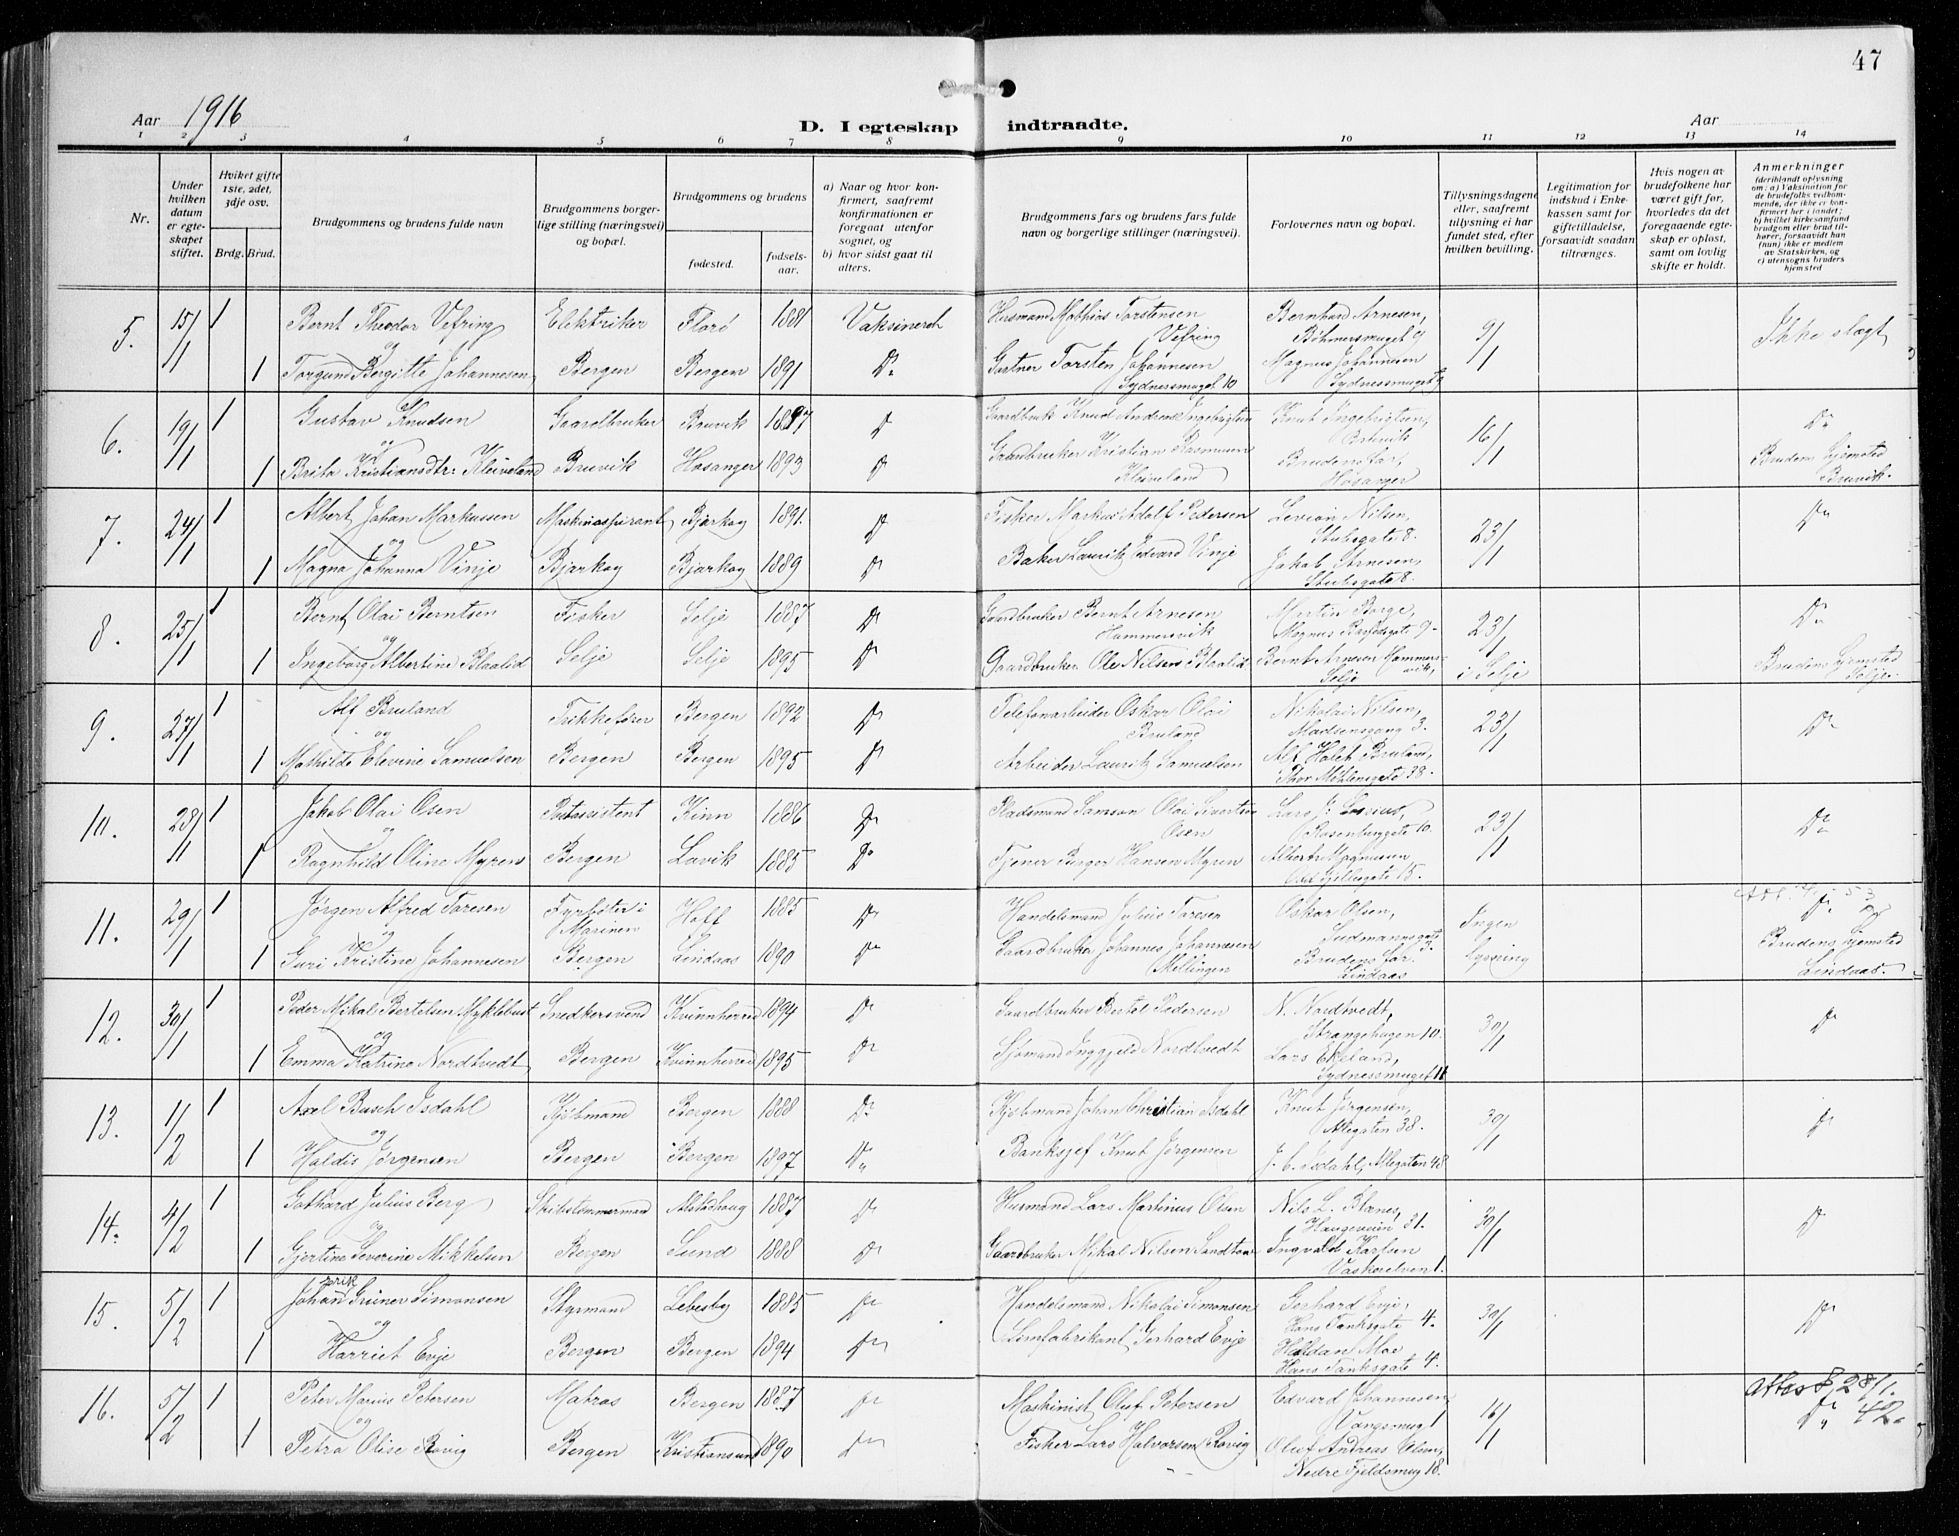 47
Aar 1916
D. I egteskap indtraadte.
Aar
1 2 3 4 5 6 7 8 9 10 11 12 13 14
Nr.
Under hvilken datum er egteskapet stiftet.
Hviket gifte 1ste, 2det, 3dje osv.
Brdg. Brud.
Brudgommens og brudens fulde navn
Brudgommens borgerlige stilling (næringsvei) og bopæl.
Brudgommens og brudens
fødested.
fødselsaar.
a) Naar og hvor konfirmert, saafremt konfirmationen er foregaat utenfor sognet, og
b) hvor sidst gaat til alters.
Brudgommens fars og brudens fars fulde navn og borgerlige stillinger (næringsvei).
Forlovernes navn og bopæl.
Tillysningsdagene eller, saafremt tillysning ei har fundet sted, efter hvilken bevilling.
Legitimation for indskud i Enkekassen samt for giftetilladelse, forsaavidt saadan tiltrænges.
Hvis nogen av brudefolkene har været gift før, hvorledes da det foregaaende egteskap er opløst, samt om lovlig skifte er holdt.
Anmerkninger (deriblandt oplysning om: a) Vaksination for de brudefolks vedkommende, der ikke er konfirmert her i landet; b) hvilket kirkesamfund brudgom eller brud tilhører, forsaavidt han (hun) ikke er medlem av Statskirken, og c) utensogns bruders hjemsted
5. 15/1 1 Bernt Theodor Vefring Elektriker Florø 1881 Vaksinerel Husmand Mathias Torstensen Vefring Bernhard Arnesen, Bøhmersmuget 9 9/1 Ikke slegt
og
1 Torgund Bergitte Johannesen Bergen Bergen 1891 Do Gartner Torsten Johannesen Sydnersmuget 10 Magnus Johannesen Sydnessmuget
6. 19/1 1 Gustav Knudsen Gaardbruker Bruvik 1887 Do Gaardbruk Knud Andreas Ingebrigtsen Knut Ingebrigtsen, Bruvik 16/1 Do
og
1 Brita Kristiansdtr. Kleiveland Bruvik Hosanger 1893 Do Gaardbruker Kristian Rasmussen Kleiveland Brudens far, Hosanger Brudens hjemsted Bruvik.
7. 24/1 1 Albert Johan Markussen Maskinaspirant Bjarkøy 1891. Do Fisker Markus Adolf Pedersen Levion Nilsen, Stubsgate 8. 23/1 Do
og
1 Magna Johanna Vinje Bjarkøy Bjarkøy 1889 Do Baker Laurits Edvard Vinje Jakob Arnesen, Stubsgate 8.
8. 25/1 1 Bernt Olai Berntsen Fisker Selje 1887 Do Gaardbruker Bernt Arnesen Hammersvik Martin Borge, Magnus Barfodsgate 9 23/1 Do
og
1 Ingeborg Albertine Blaalid Selje Selje 1895 Do Gaardbruker Ole Nilsen Blaalid Bernt Arnesen Hammersvik, Selje i Selje Brudens hjemsted Selje.
9. 27/1 1 Alf Bruland Trikkefører Bergen 1892 Do Telefonarbeider Oskar Olai Bruland Nikolai Nilsen, Madsensgang 3. 23/1 Do
og
1 Mathilde Elevine Samuelsen Bergen Bergen 1895 Do Arbeider Laurits Samuelsen Alf Holck Bruland, Thor Møhlensgate 38.
10. 28/1 1 Jakob Olai Osen Postassistent Kinn 1886 Do Pladsmand Samson Olai Sivertsen Osen Lars J. Rosenberggate 10. 23/1 Do
og
1 Ragnhild Oline Myren Bergen Lavik 1885 Do Tjener Berge Hansen Myren Albert Magnussen 15.
11. 29/1 1 Jørgen Alfred Toresen Fyrbøter i Marinen Hoff 1885 Do Handelsmand Julius Toresen Oskar Olsen, Sudmannsgate Ingen Do
og
1 Guri Kristine Johannesen Bergen Lindaas 1890 Do Gaardbruker Johannes Johannesen Mellingen Brudens far. Lindaas lysning Brudens hjemsted Lindaas.
12. 30/1 1 Peder Mikal Bertelsen Myklebust Snedkersvend Kvinnherred 1894 Do Gaardbruker Bertel Pedersen N. Nordtvedt, Strangehagen 10. 30/1 Do
og
1 Emma Katrine Nordtvedt Bergen Kvinnherred 1895 Do Sjømand Inggjeld Nordtvedt Lars Ekeland, Sydnessmuget 11
13. 1/2 1 Axel Busch Isdahl Kjøbmand Bergen 1888 Do Kjøbmand Johan Christian Isdahl Knut Jørgensen, Allegaten 38. 30/1 Do
og
1 Haldis Jørgensen Bergen Bergen 1897 Do Banksjef Knut Jørgensen J. C. Isdahl, Allegaten 48
14. 4/2 1 Gothard Julius Berg Skibstømmermand Alstadhaug 1887 Do Husmand Lars Martinus Olsen Nils L. Blænes, Haugeveien 31. 30/1 Do
og
1 Gjertine Severine Mikkelsen Bergen Sund 1888 Do Gaardbruker Mikal Nilsen Ingvald Karlsen Vaskerelven 1.
15. 5/2 1 Johan Grüner Simonsen Styrmand Lebesby 1885 Do Handelsmand Nikolai Simonsen Gerhard Evje, Hans Tanksgate 4. 30/1 Do
og
1 Harriet Evje Bergen Bergen 1894 Do Lemfabrikant Gerhard Evje Haldan Moe Hans Tanksgate 4.
16. 5/2 1 Peter Marius Petersen Matros Bergen 1887 Do Maskinist Oluf Petersen Edvard Johannesen, Vangsmug 1 16/1 Attest 28/1. 42. Do
og
1 Petra Olise Rovig Bergen Kristiansund 1890 Do Fisker Lars Halvorsen Rovig Oluf Andreas Olsen, Nedre Fjeldsmug 18.